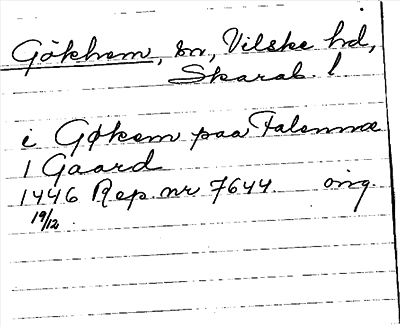 Gökhem, sn, Vilske hd,
Skarab. l
i Gøkem paa Falennæ
1 Gaard
1446 Rep. nr 7644 orig.
19/12